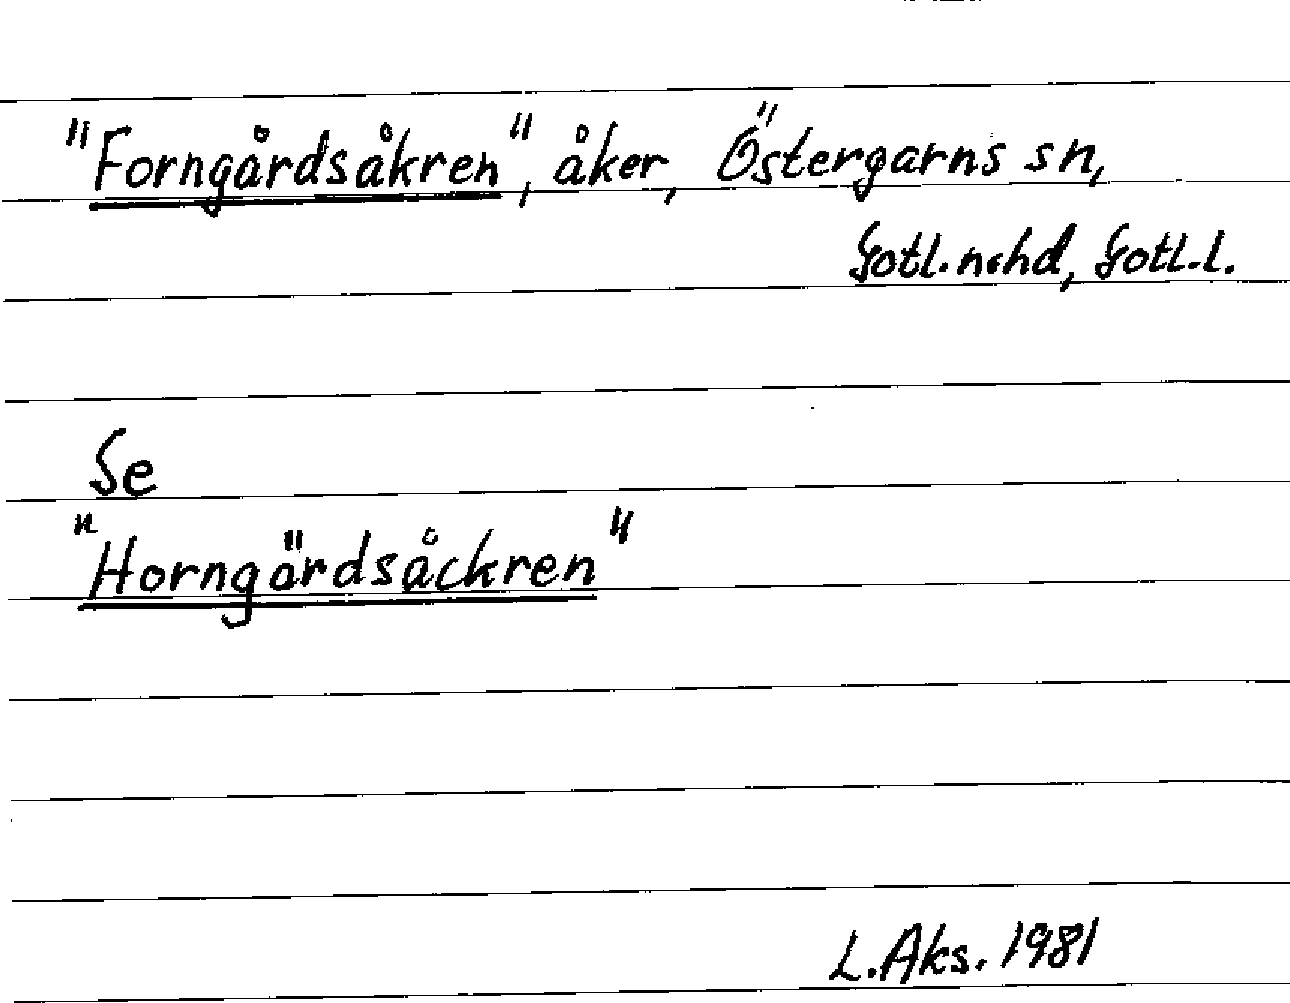 "Forngårdsåkren", åker, Östergarns sn,
Gotl. n. hd, Gotl. l.
Se
"Horngärdsåckren"
L. Aks. 1981